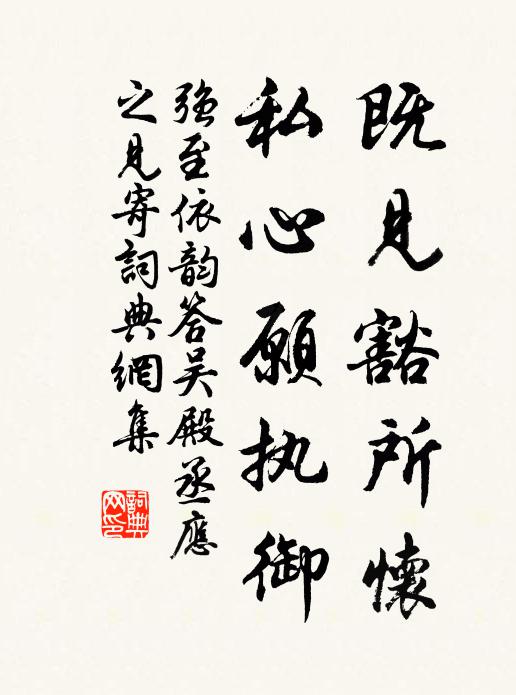 既见豁所懷
私心願执御
强至依韵答吴殿丞應
之見寄詞典網集
詞典网印